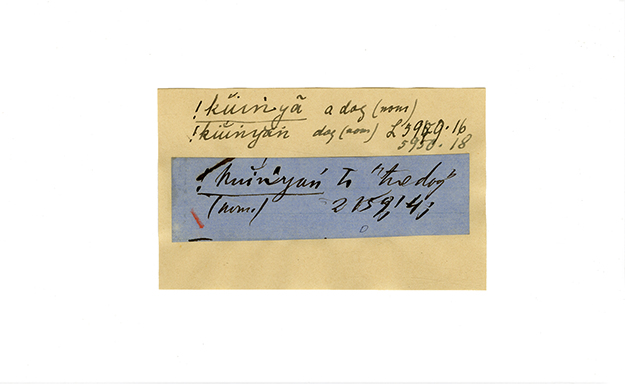 !kŭinyã a dog (nom)
!kŭinyań dog (nom) L 5950.16
5950.18
!kuĭn yań to "the dog"
(nom.) 2159,!4;